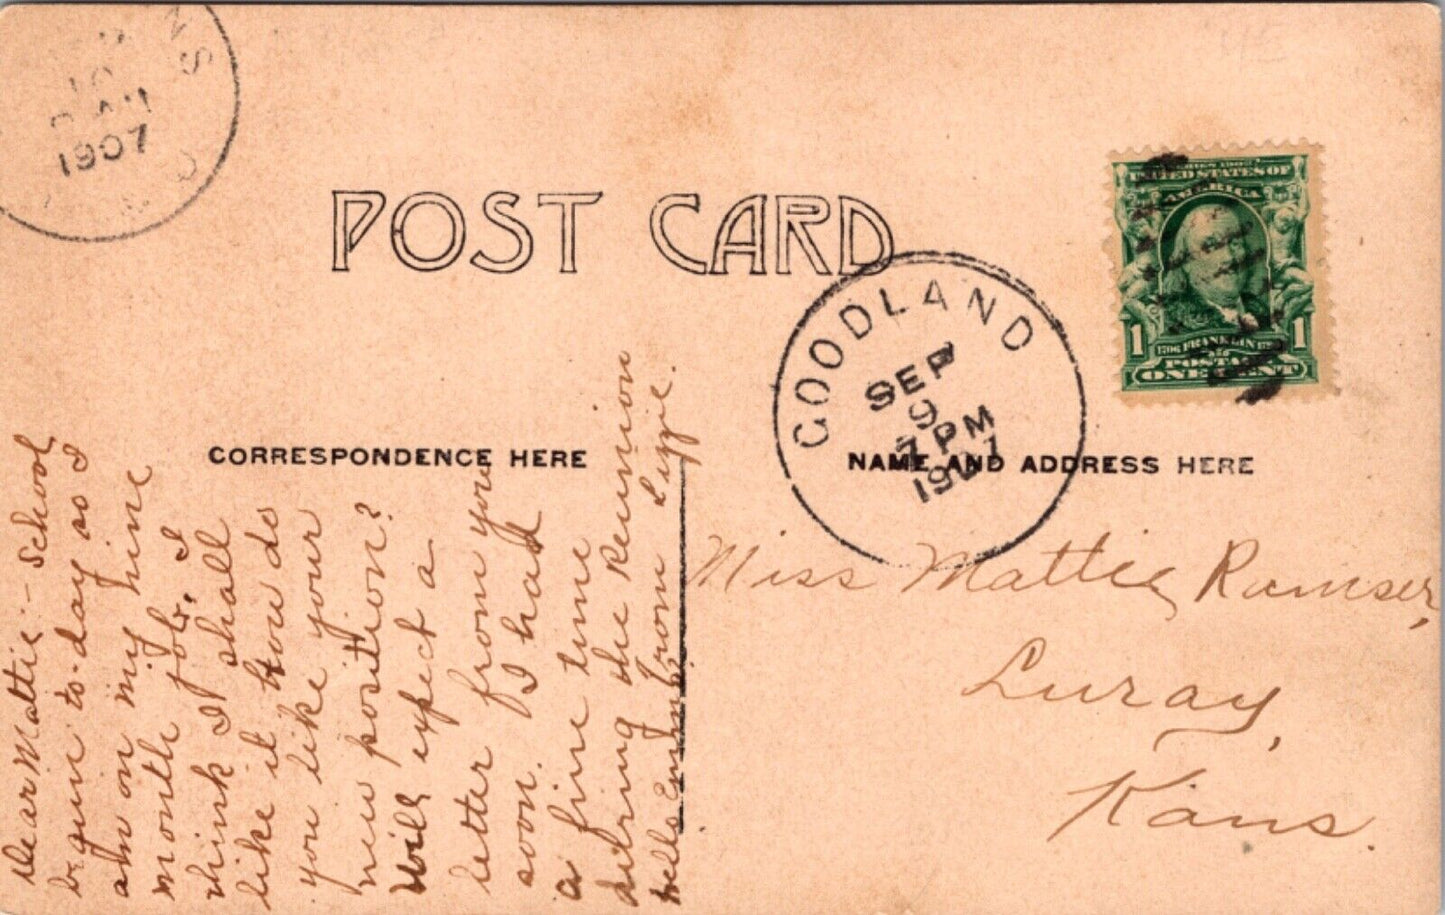 NS
10
AM
1907
POST CARD
SERIES 1902
UNITED STATES OF
AMERICA
1 1
1706 FRANKLIN
POSTAGE
ONE CENT
GOODLAND
SEP
9
7 PM
1907
CORRESPONDENCE HERE
NAME AND ADDRESS HERE
Dear Mattie:- School
begun to-day so I
am on my nine
month job. I
think I shall
like it how do
you like your
new position?
Will expect a
letter from you
soon. I had
a fine time
during the Reunion
from Lizze.
Miss Mattie Ramser,
Luray,
Kans.